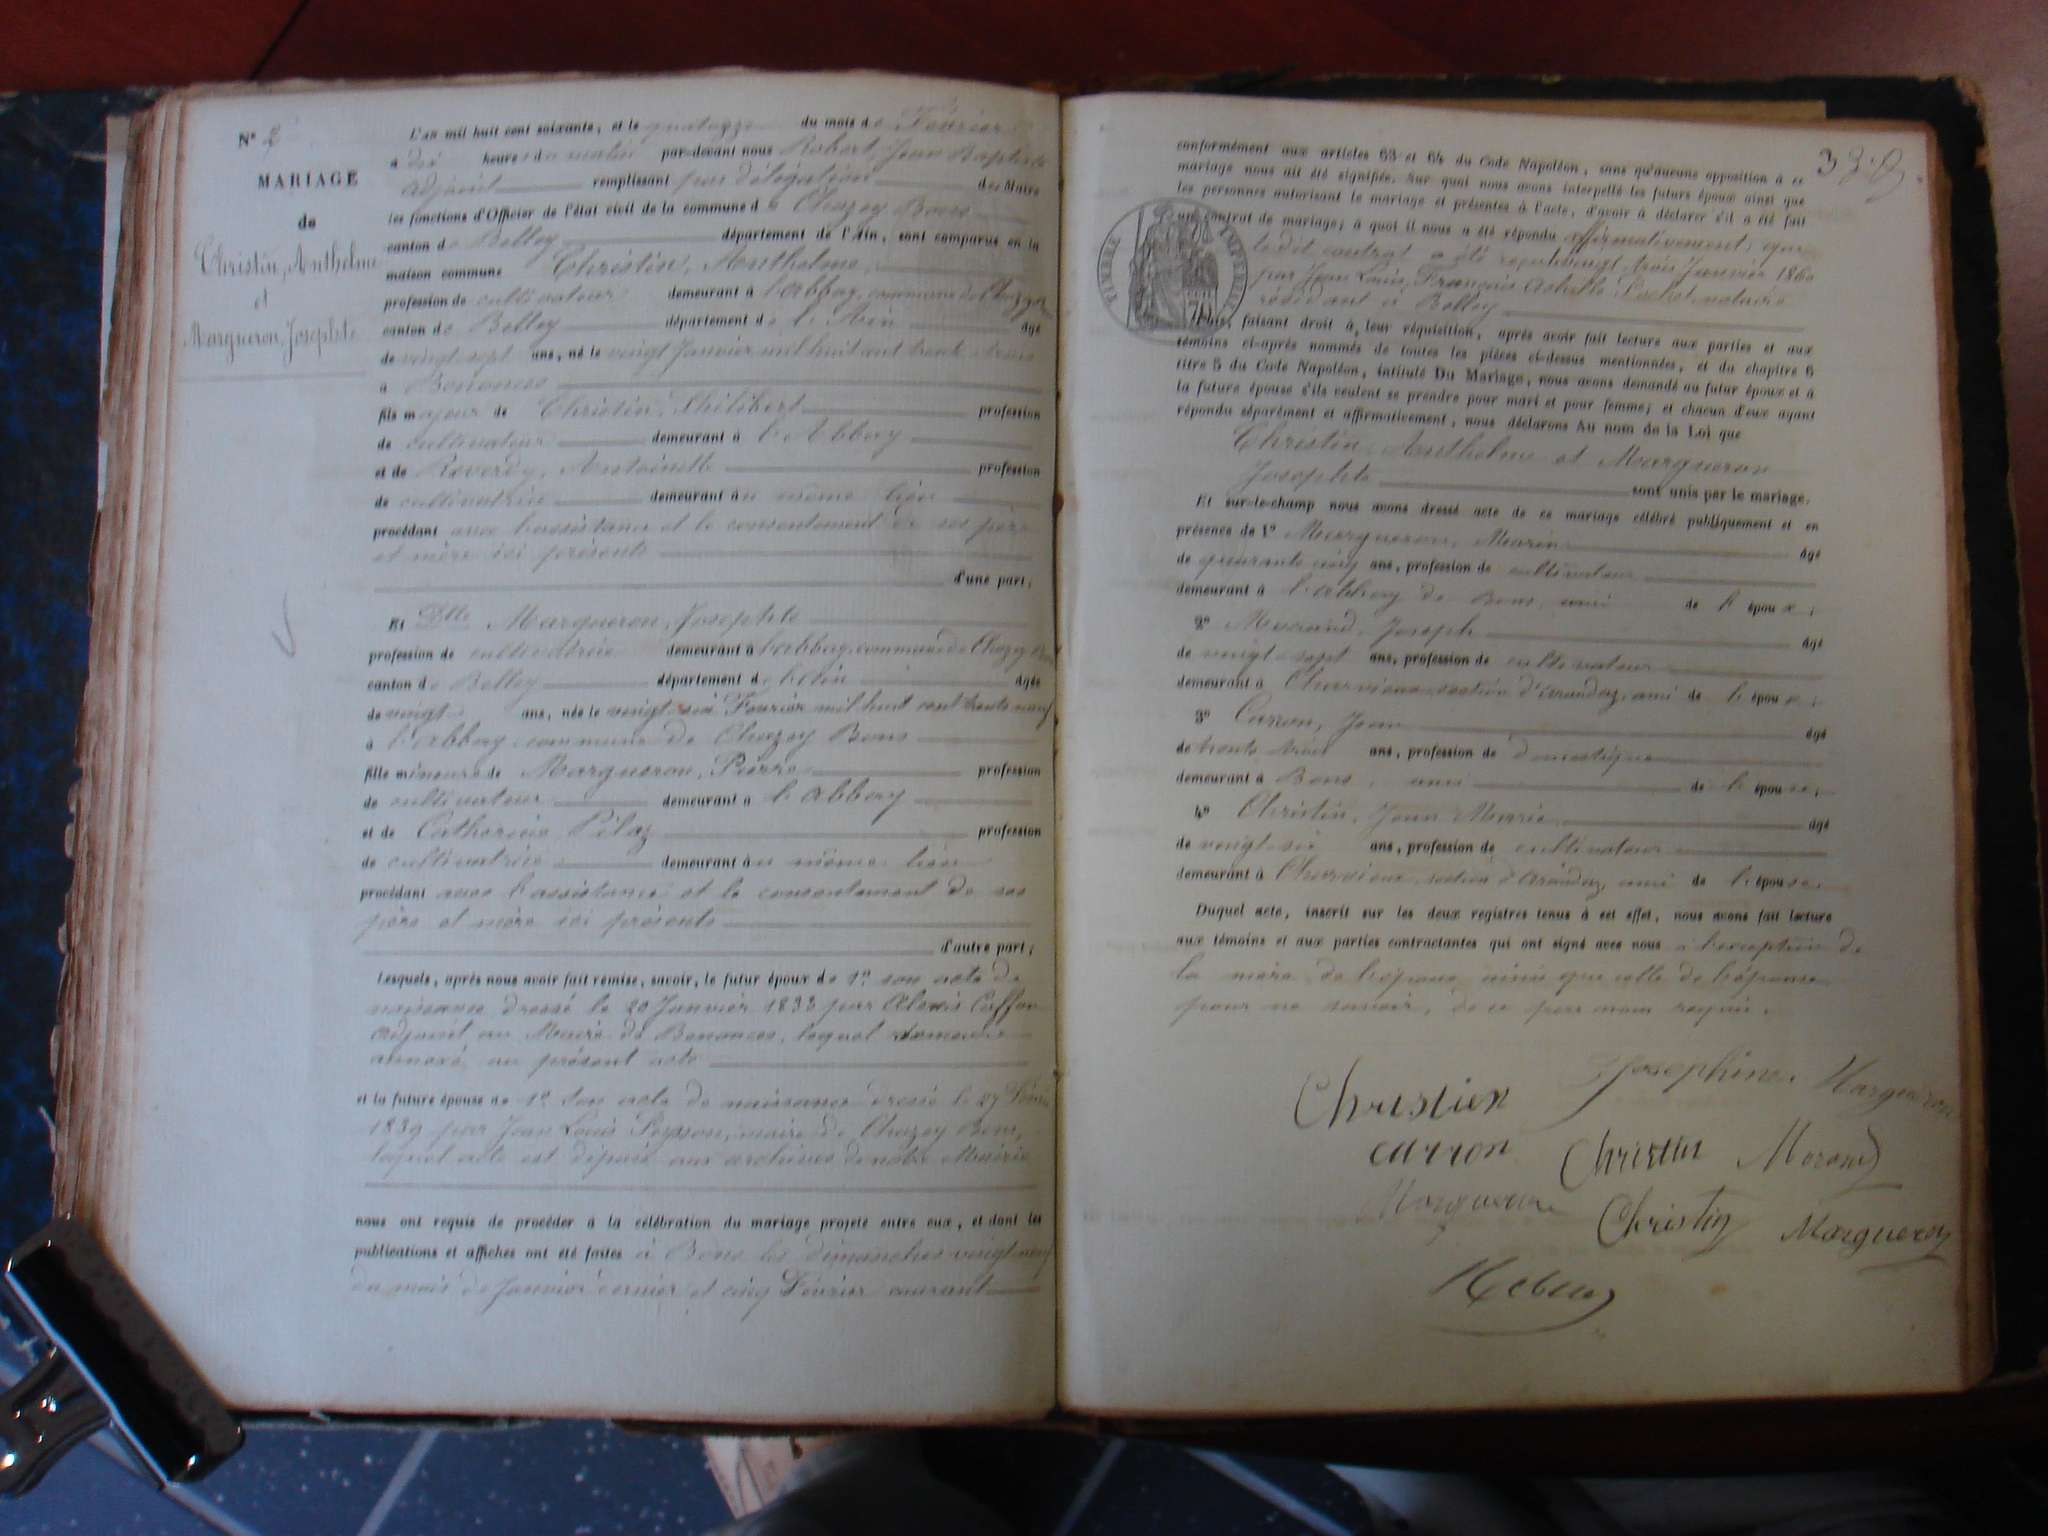 N° 2
MARIAGE
de
Christin, Anthelme
et
Margueron, Josephte
L'an mil huit cent soixante, et le quatorze du mois de Février
à dix heures du matin par-devant nous Robert, Jean Baptiste
adjoint remplissant par délégation du Maire
les fonctions d'Officier de l'état civil de la commune de Chazey Bons
canton de Belley département de l'Ain, sont comparus en la
maison commune Christin, Anthelme,
profession de cultivateur demeurant à l'abbay, commune de Chazey
canton de Belley département de l'Ain âgé
de vingt sept ans, né le vingt Janvier mil huit cent trente trois
à Benonces
fils majeur de Christin, Philibert profession
de cultivateur demeurant à l'Abbay
et de Reverdy, Antoinette profession
de cultivatrice demeurant au même lieu
procédant avec l'assistance et le consentement de ses père
et mère ici présents
d'une part;
Et Dlle Margueron, Josephte
profession de cultivatrice demeurant à l'abbay, commune de Chazey Bons
canton de Belley département de l'Ain âgée
de vingt ans, née le vingt six Février mil huit cent trente neuf
à l'abbay, commune de Chazey Bons
fille mineure de Margueron, Pierre profession
de cultivateur demeurant à l'abbay
et de Catherine Pélaz profession
de cultivatrice demeurant au même lieu
procédant avec l'assistance et le consentement de ses
père et mère ici présents
d'autre part;
Lesquels, après nous avoir fait remise, savoir, le futur époux de 1° son acte de
naissance dressé le 20 Janvier 1833 par Alexis
adjoint au Maire de Benonces, lequel demeure
annexé au présent acte
et la future épouse de 1° son acte de naissance dressé le 27 Février
1839 par Jean Louis Peysson, maire de Chazey Bons,
lequel acte est déposé aux archives de notre Mairie
nous ont requis de procéder à la célébration du mariage projeté entre eux, et dont les
publications et affiches ont été faites à Bons les dimanches vingt neuf
du mois de Janvier dernier et cinq Février courant
conformément aux articles 63 et 64 du Code Napoléon, sans qu'aucune opposition à ce
mariage nous ait été signifiée. Sur quoi nous avons interpellé les futurs époux ainsi que
les personnes autorisant le mariage et présentes à l'acte, d'avoir à déclarer s'il a été fait
un contrat de mariage; à quoi il nous a été répondu affirmativement, que
le dit contrat a été reçu le vingt trois Janvier 1860
par Jean Louis François notaire
résidant à Belley
TIMBRE IMPÉRIAL
Puis, faisant droit à leur réquisition, après avoir fait lecture aux parties et aux
témoins ci-après nommés de toutes les pièces ci-dessus mentionnées, et du chapitre 6
titre 5 du Code Napoléon, intitulé Du Mariage, nous avons demandé au futur époux et à
la future épouse s'ils veulent se prendre pour mari et pour femme; et chacun d'eux ayant
répondu séparément et affirmativement, nous déclarons Au nom de la Loi que
Christin, Anthelme et Margueron
Josephte sont unis par le mariage.
Et sur-le-champ nous avons dressé acte de ce mariage célébré publiquement et en
présence de 1° Margueron, Marin âgé
de quarante cinq ans, profession de cultivateur
demeurant à l'abbay de Bons, ami de l'époux;
2° Morand, Joseph âgé
de vingt-sept ans, profession de cultivateur
demeurant à section d'arandaz, ami de l'époux;
3° Caron, Jean âgé
de trente trois ans, profession de domestique
demeurant à Bons, ami de l'épouse;
4° Christin, Jean Marie âgé
de vingt-six ans, profession de cultivateur
demeurant à section d'Arandaz, ami de l'épouse.
Duquel acte, inscrit sur les deux registres tenus à cet effet, nous avons fait lecture
aux témoins et aux parties contractantes qui ont signé avec nous à l'exception de
la mère de l'époux ainsi que celle de l'épouse
pour ne savoir, de ce par nous requis.
Christin Josephine Margueron
carron Christin Morand
Margueron Christin Margueron